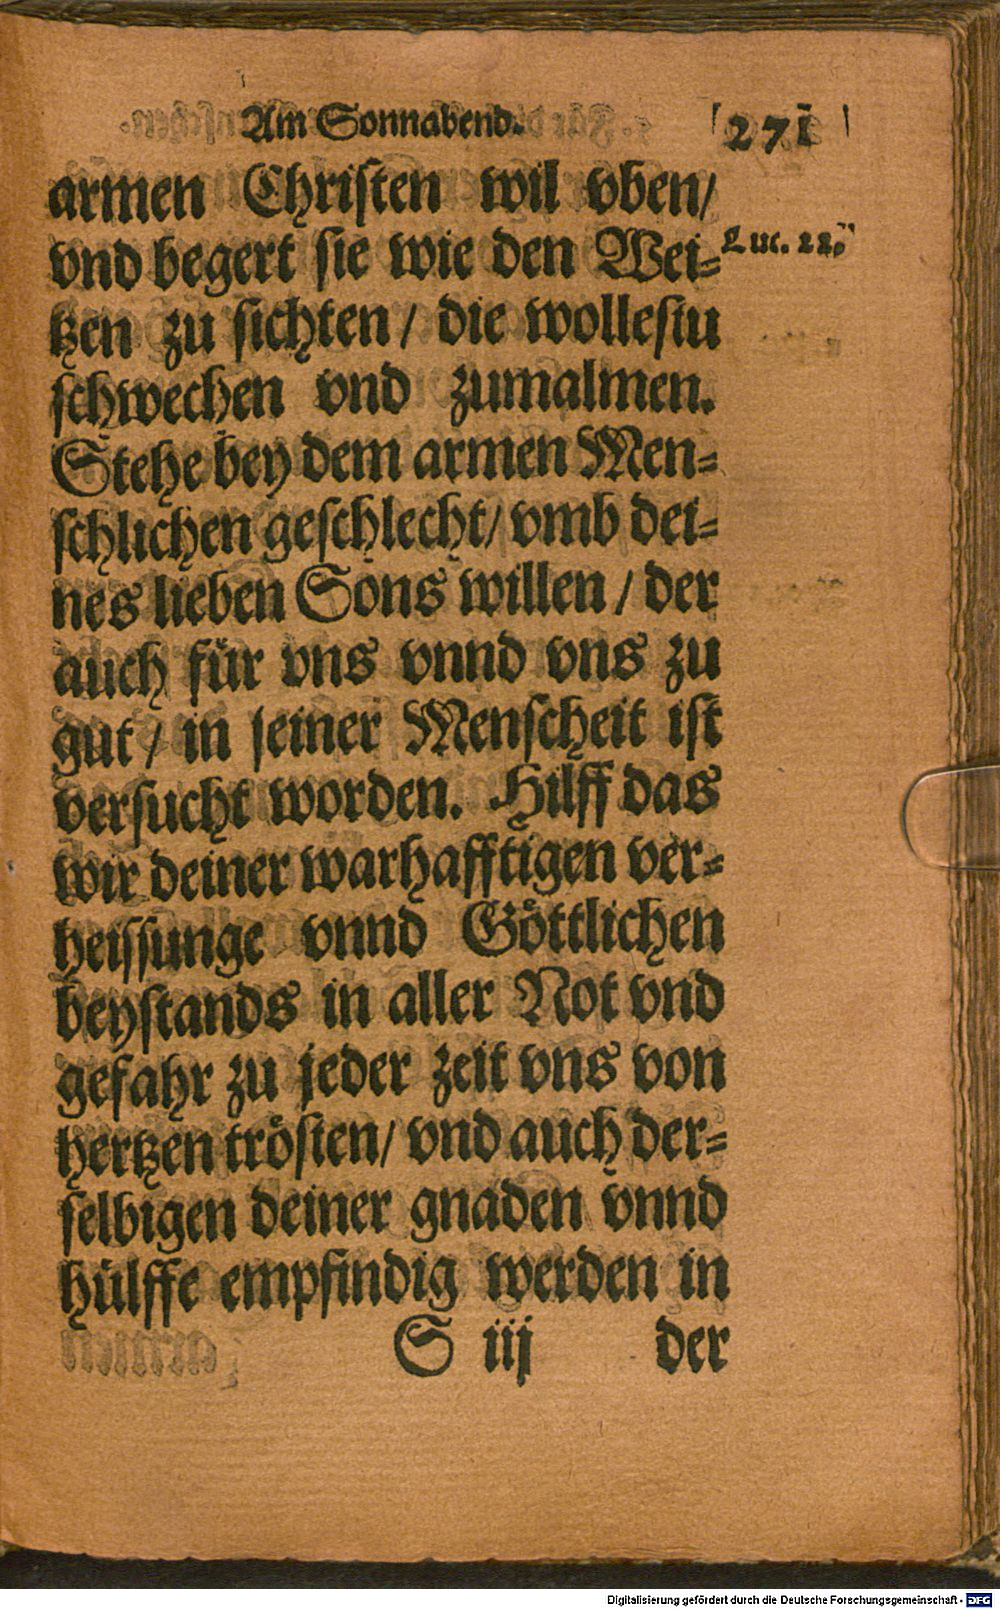 Am Sonnabend. 271
armen Christen wil vben/
vnd begert sie wie den Wei= Luc. 22.
tzen zu sichten / die wollestu
schwechen vnd zumalmen.
Stehe bey dem armen Men=
schlichen geschlecht/ vmb dei=
nes lieben Sons willen / der
auch für vns vnnd vns zu
gut / in seiner Menscheit ist
versucht worden. Hilff das
wir deiner warhafftigen ver=
heissunge vnnd Göttlichen
beystands in aller Not vnd
gefahr zu jeder zeit vns von
hertzen trösten/ vnd auch der=
selbigen deiner gnaden vnnd
hülffe empfindig werden in
S iij der
Digitalisierung gefördert durch die Deutsche Forschungsgemeinschaft - DFG